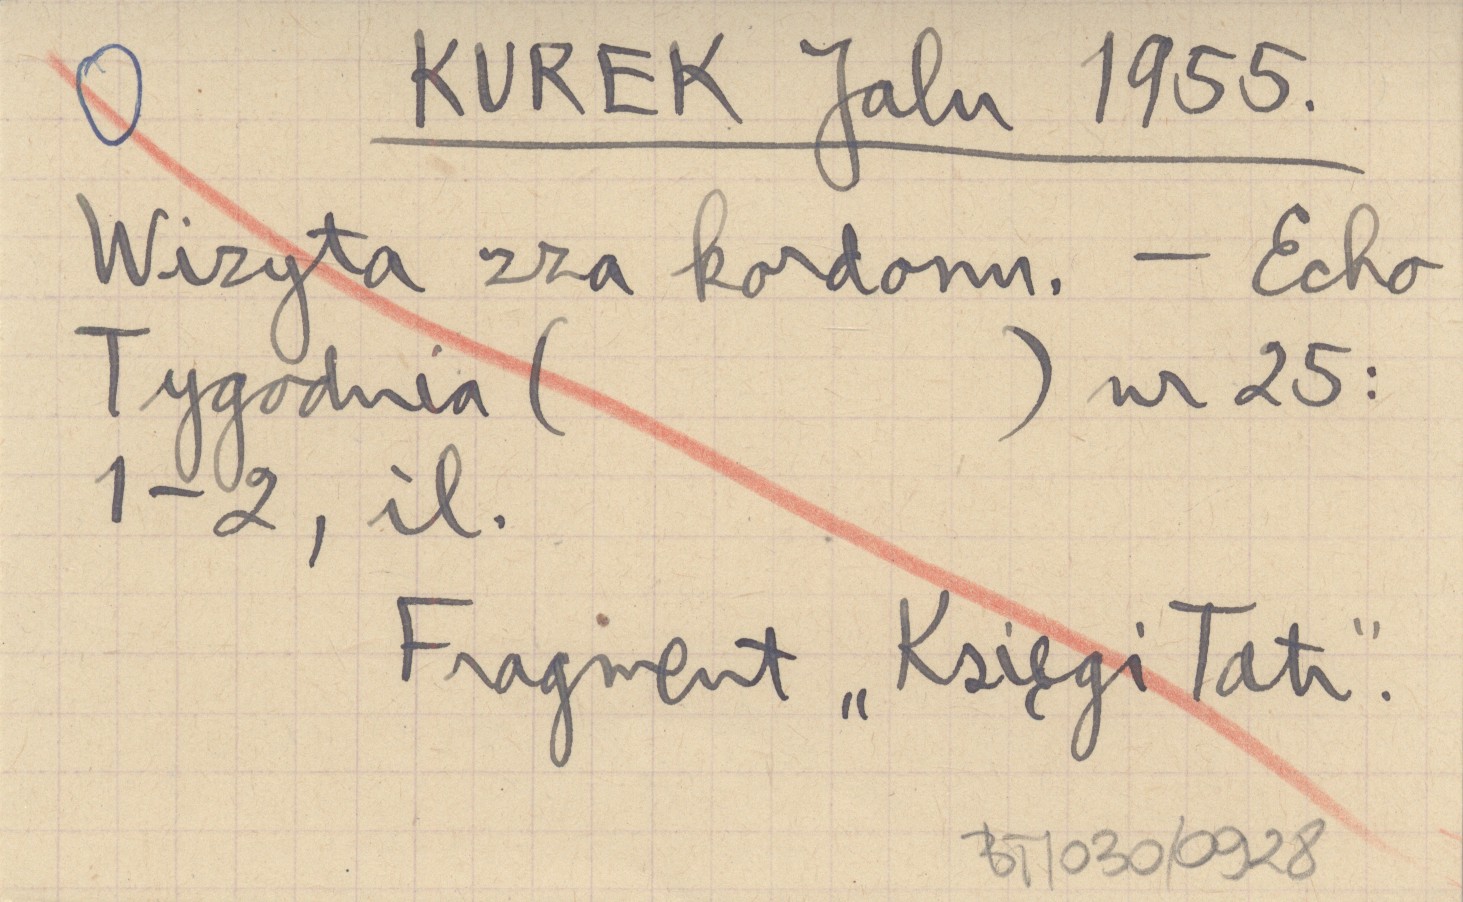 KUREK Jalu 1955.
Wizyta zza kordonu. – Echo
Tygodnia (                    ) nr 25:
1–2, il.
Fragment „Księgi Tatr".
BT/030/0928